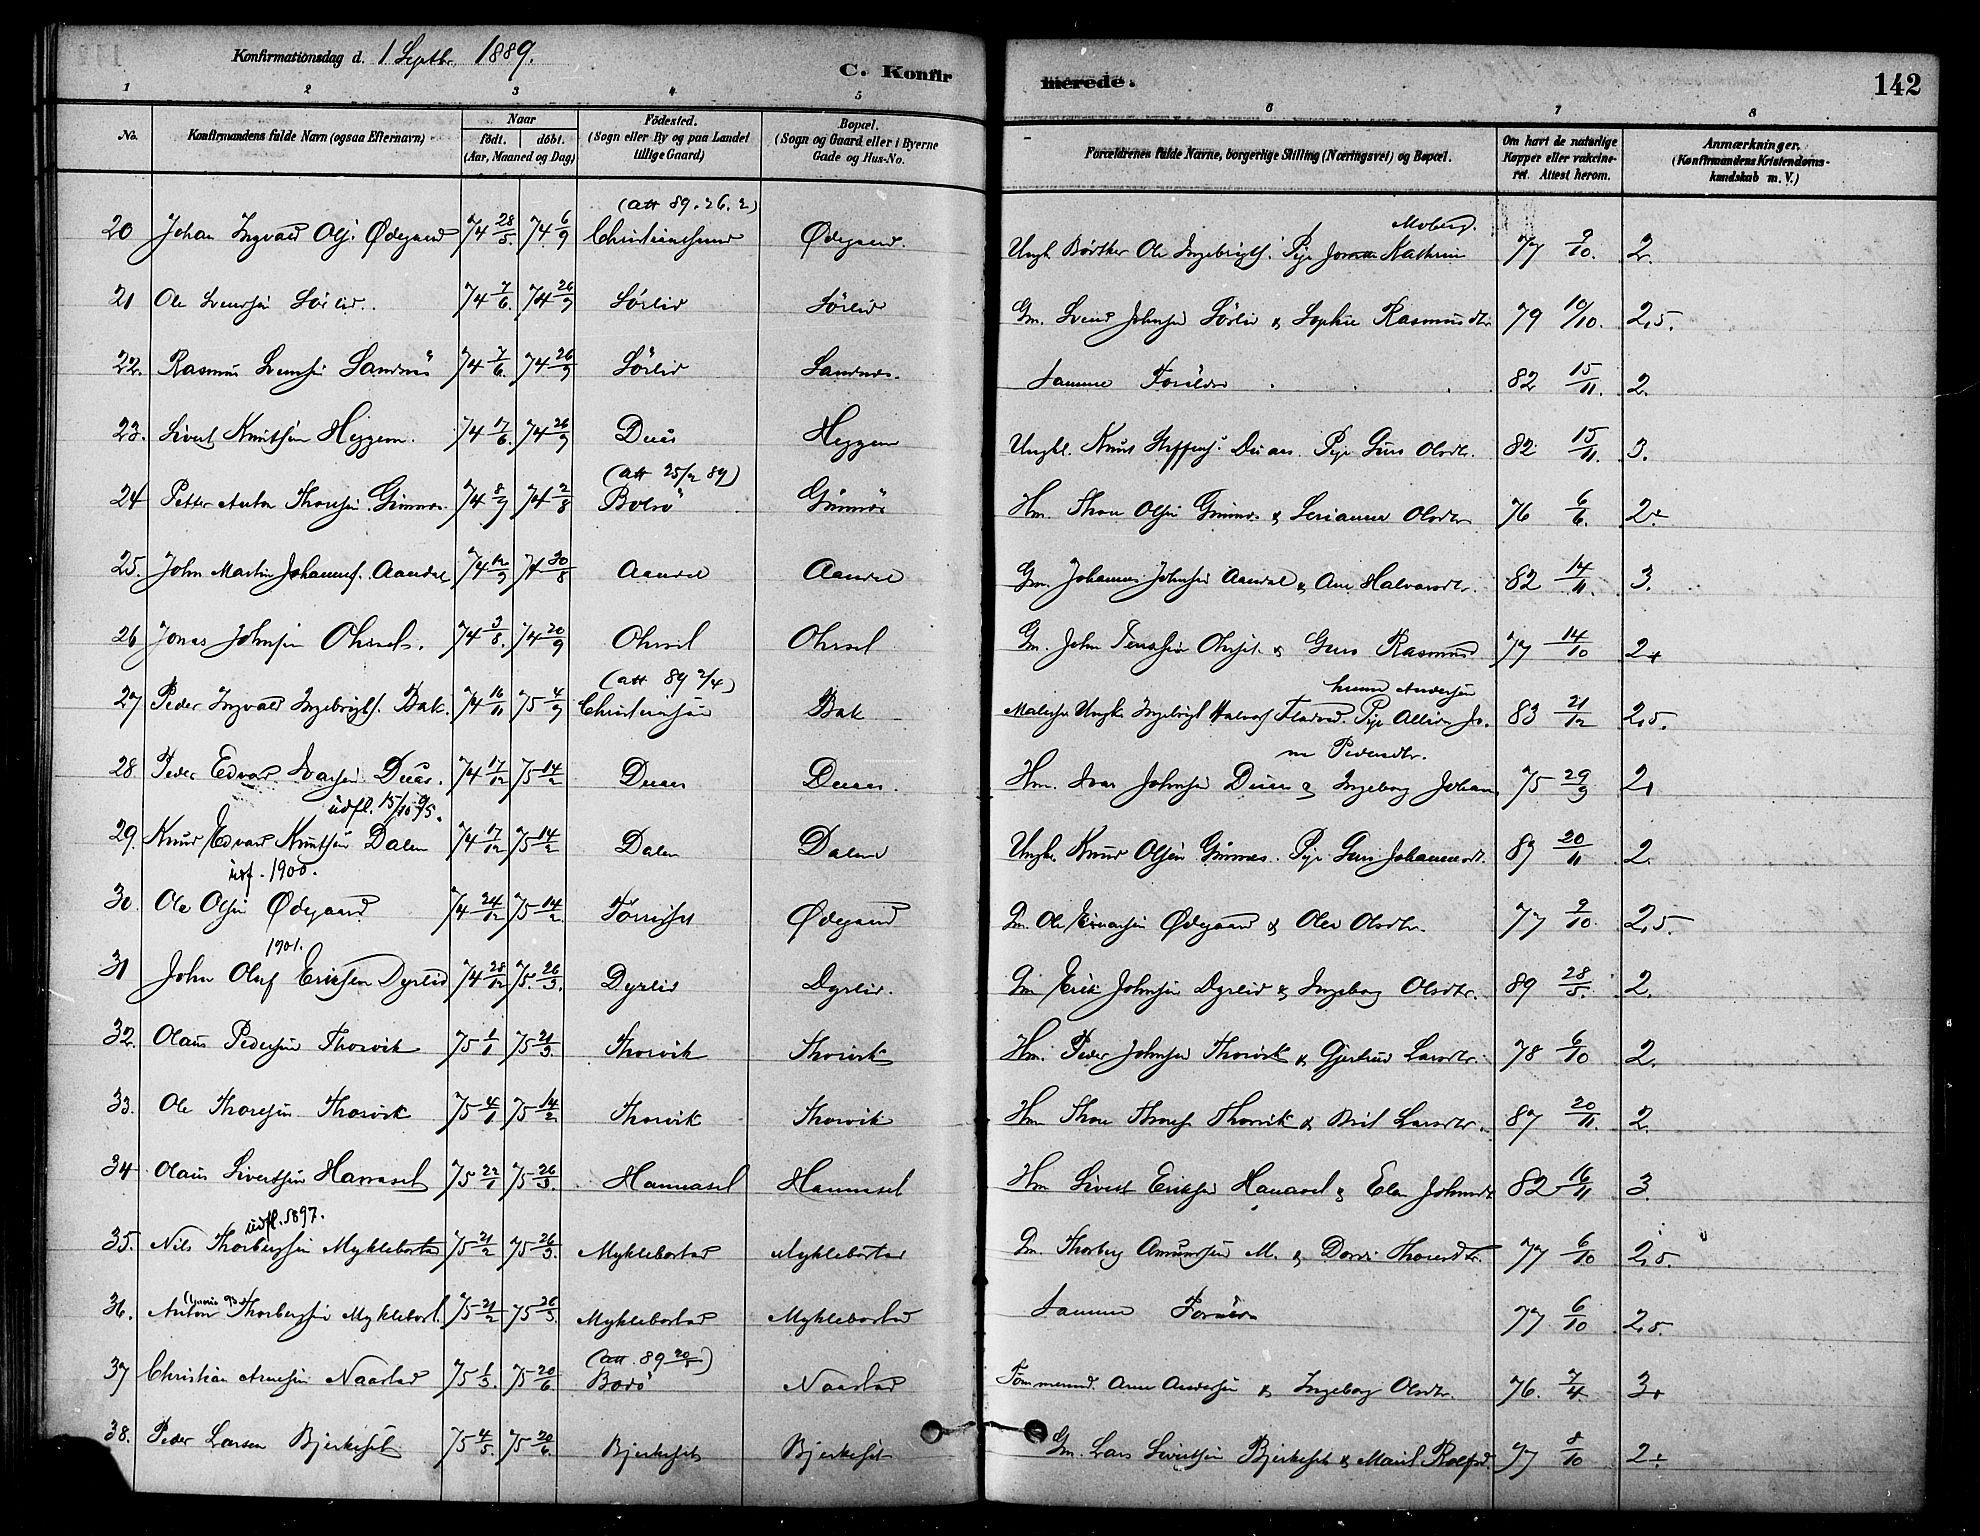 Konfirmationsdag d. 1 Septbr. 1889.
C. Konfirmerede.
142
1 2 3 4 5 6 7 8
No. Konfirmandens fulde Navn (ogsaa Efternavn) Naar födt. döbt. (Aar, Maaned og Dag) Födested. (Sogn eller By og paa Landet tillige Gaard) Bopæl. (Sogn og Gaard eller i Byerne Gade og Hus-No. Forældrenes fulde Navne, borgerlige Stilling (Næringsvei) og Bopæl. Om havt de naturlige Kopper eller vakcineret. Attest herom. Anmærkninger. (Konfirmandens Kristendomskundskab m. V.)
(att 89. 26. 2) Moberg.
20 Johan Ingvald Ols. Ødegaard 74 28/5. 74 6/9 Christiansund Ødegaard. Ungk. Bødker Ole Ingebrigts. Pige Kathrine 77 9/10. 2.
21 Ole Svensen Sörlid. 74 7/6. 74 26/9 Sörlid Sörlid Gm. Svend Johnsen Sörlid & Sophie Rasmusdtr 79 10/10. 2,5.
22. Rasmus Svensen Sandnæs 74 7/6. 74 26/9 Sörlid Sandnæs. Samme Forældre 82 15/11. 2.
23. Sivert Knutsen Heggem. 74 17/6. 74 26/9 Duås Heggem Ungkl. Knut Steffens. Duaas. Pige Guro Olsdtr. 82 15/11. 3.
(att 25/2 89)
24 Petter Anton Thoresen Gimnæs. 74 8/7 74 2/8 Bolsö Gimnæs Hm. Thore Olsen Gimnæs & Serianna Olsdtr 76 6/6. 2+
25. John Martin Johannes. Aandal 74 12/7 74 30/8 Aandal Aandal Gm. Johannes Johnsen Aandal & Ane Halvorsdtr. 82 14/11. 3.
26 Jonas Johnsen Ohrsel. 74 3/8. 74 20/9 Ohrsel Ohrsel Gm. John Ohrset & Guro Rasmusd 77 14/10 2+
(att 89 2/4) Andersen
27 Peder Ingvald Ingebrigts. Bak. 74 16/11 75 4/9 Christiansund Bak Ungk. Ingebrigt Halvors Pige 83 21/12 2,5.
28 Peder Edvard Ivarsen Duås. 74 17/12 75 14/2 Duaas Duaas. Hm. Ivar Johnsen Duaas & Ingeborg Johans 75 29/9 2+
udfl. 15/10 95.
29. Knud Edvard Knutsen Dalen 74 17/12 75 14/2 Dalen Dalen Ungk. Knud Olsen Gimnæs. Pige Guri Johannesdt. 87 20/11 2.
udf. 1900.
30. Ole Olsen Ødegaard 74 24/12 75 14/2. Ødegaard Gm. Ole Ødegaard & Olsdtr. 77 9/10. 2,5.
1901.
31 John Oluf Eriksen Dyrlid 74 28/12 75. 26/3. Dyrlid Dyrlid. Gm Erik Johnsen Dyrlid & Ingeborg Olsdtr. 89 28/5. 2.
32. Olaus Pedersen Thorvik 75 1/1 75 21/3. Thorvik Thorvik Hm. Peder Johnsen Thorvik & Gjertrud Larsdtr 78 6/10 2.
33. Ole Thoresen Thorvik 75 4/1 75 14/2 Thorvik Thorvik Hm Thore Thores Thorvik & Brit Larsdtr. 87 20/11. 2.
34 Olaus Sivertsen Hannasel 75 22/1 75 26/3. Hannasel Hannasel Hm Sivert Eriksen Hanasel & Johnsdt 82 16/11 3.
udfl. 1897.
35. Nils Thorbergsen Myklebostad 75 21/2 75 26/3. Myklebostad Myklebostad Gm. Thorberg Amunsen M. & Thoresdtr. 77 6/10 2,5.
36. Anton Thorbergsen Myklebost. 75 21/2 75 26/3. Myklebostad Myklebostad Samme Forældre 77 6/10 2,5.
(att. 89 )
37 Christian Arnesen Naastad 75 1/3. 75 20/6. Bodö Naastad Tömmermd. Arne Andersen & Ingeborg Olsdtr. 76. 7/4 3+
38. Peder Larsen Bjerkeset 75 4/5. 75 20/6. Bjerkeset Bjerkeset Gm. Lars Sivertsen Bjerkeset & Marit Rolfsd. 77 8/10 2+